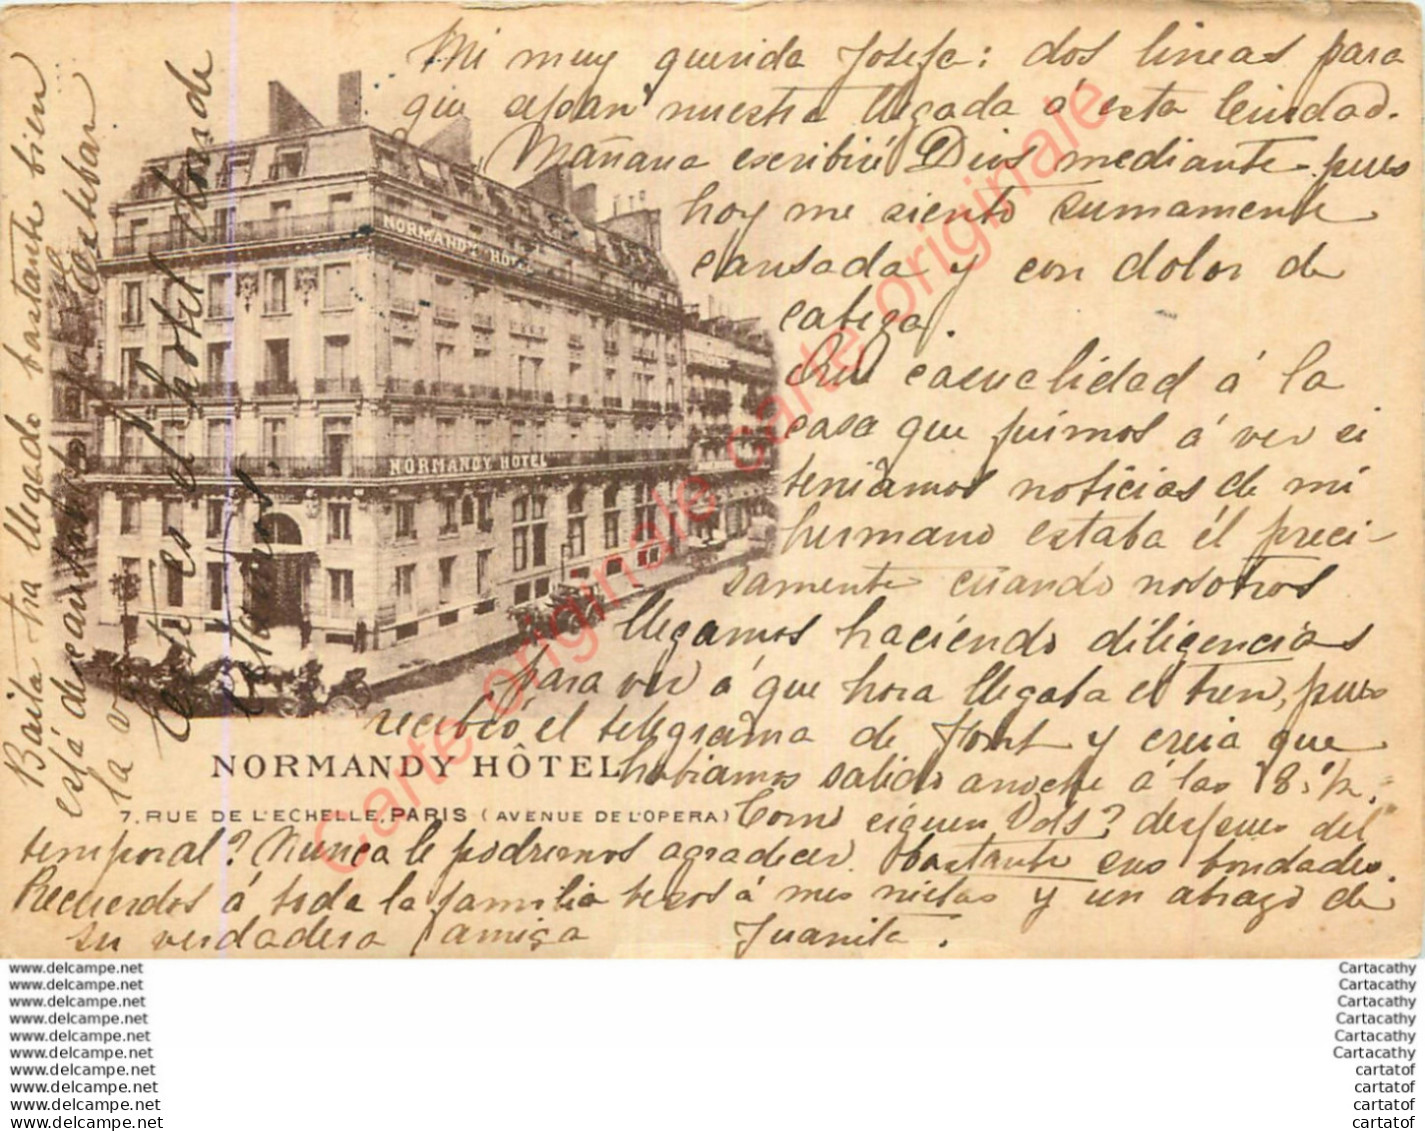 Mi muy querida Josefa: dos lineas para
que sepan nuestra llegada á esta Ciudad.
Mañana escribiré Dios mediante pues
hoy me siento sumamente
cansada y con dolor de
cabeza.
casualidad á la
casa que fuimos á ver si
teniamos noticias de mi
hermano estaba él preci-
samente cuando nosotros
llegamos haciendo diligencias
para ver á que hora llegaba el tren, pues
recibió el telegrama de Font y creia que
habiamos salido anoche á las 8 1/2.
Como siguen Vds? despues del
temporal? Nunca le podremos agradecer bastante sus bondades.
Recuerdos á toda la familia besos á mis nietas y un abrazo de
su verdadera amiga Juanita.
NORMANDY HÔTEL
NORMANDY HOTEL
NORMANDY HÔTEL
7, RUE DE L'ECHELLE, PARIS (AVENUE DE L'OPERA)
ha llegado bastante bien
está descansando
la
Este es el hotel donde
estamos.
Carte originale carte originale
Carte originale carte originale
www.delcampe.net
www.delcampe.net
www.delcampe.net
www.delcampe.net
www.delcampe.net
www.delcampe.net
www.delcampe.net
www.delcampe.net
www.delcampe.net
www.delcampe.net
Cartacathy
Cartacathy
Cartacathy
Cartacathy
Cartacathy
Cartacathy
cartatof
cartatof
cartatof
cartatof